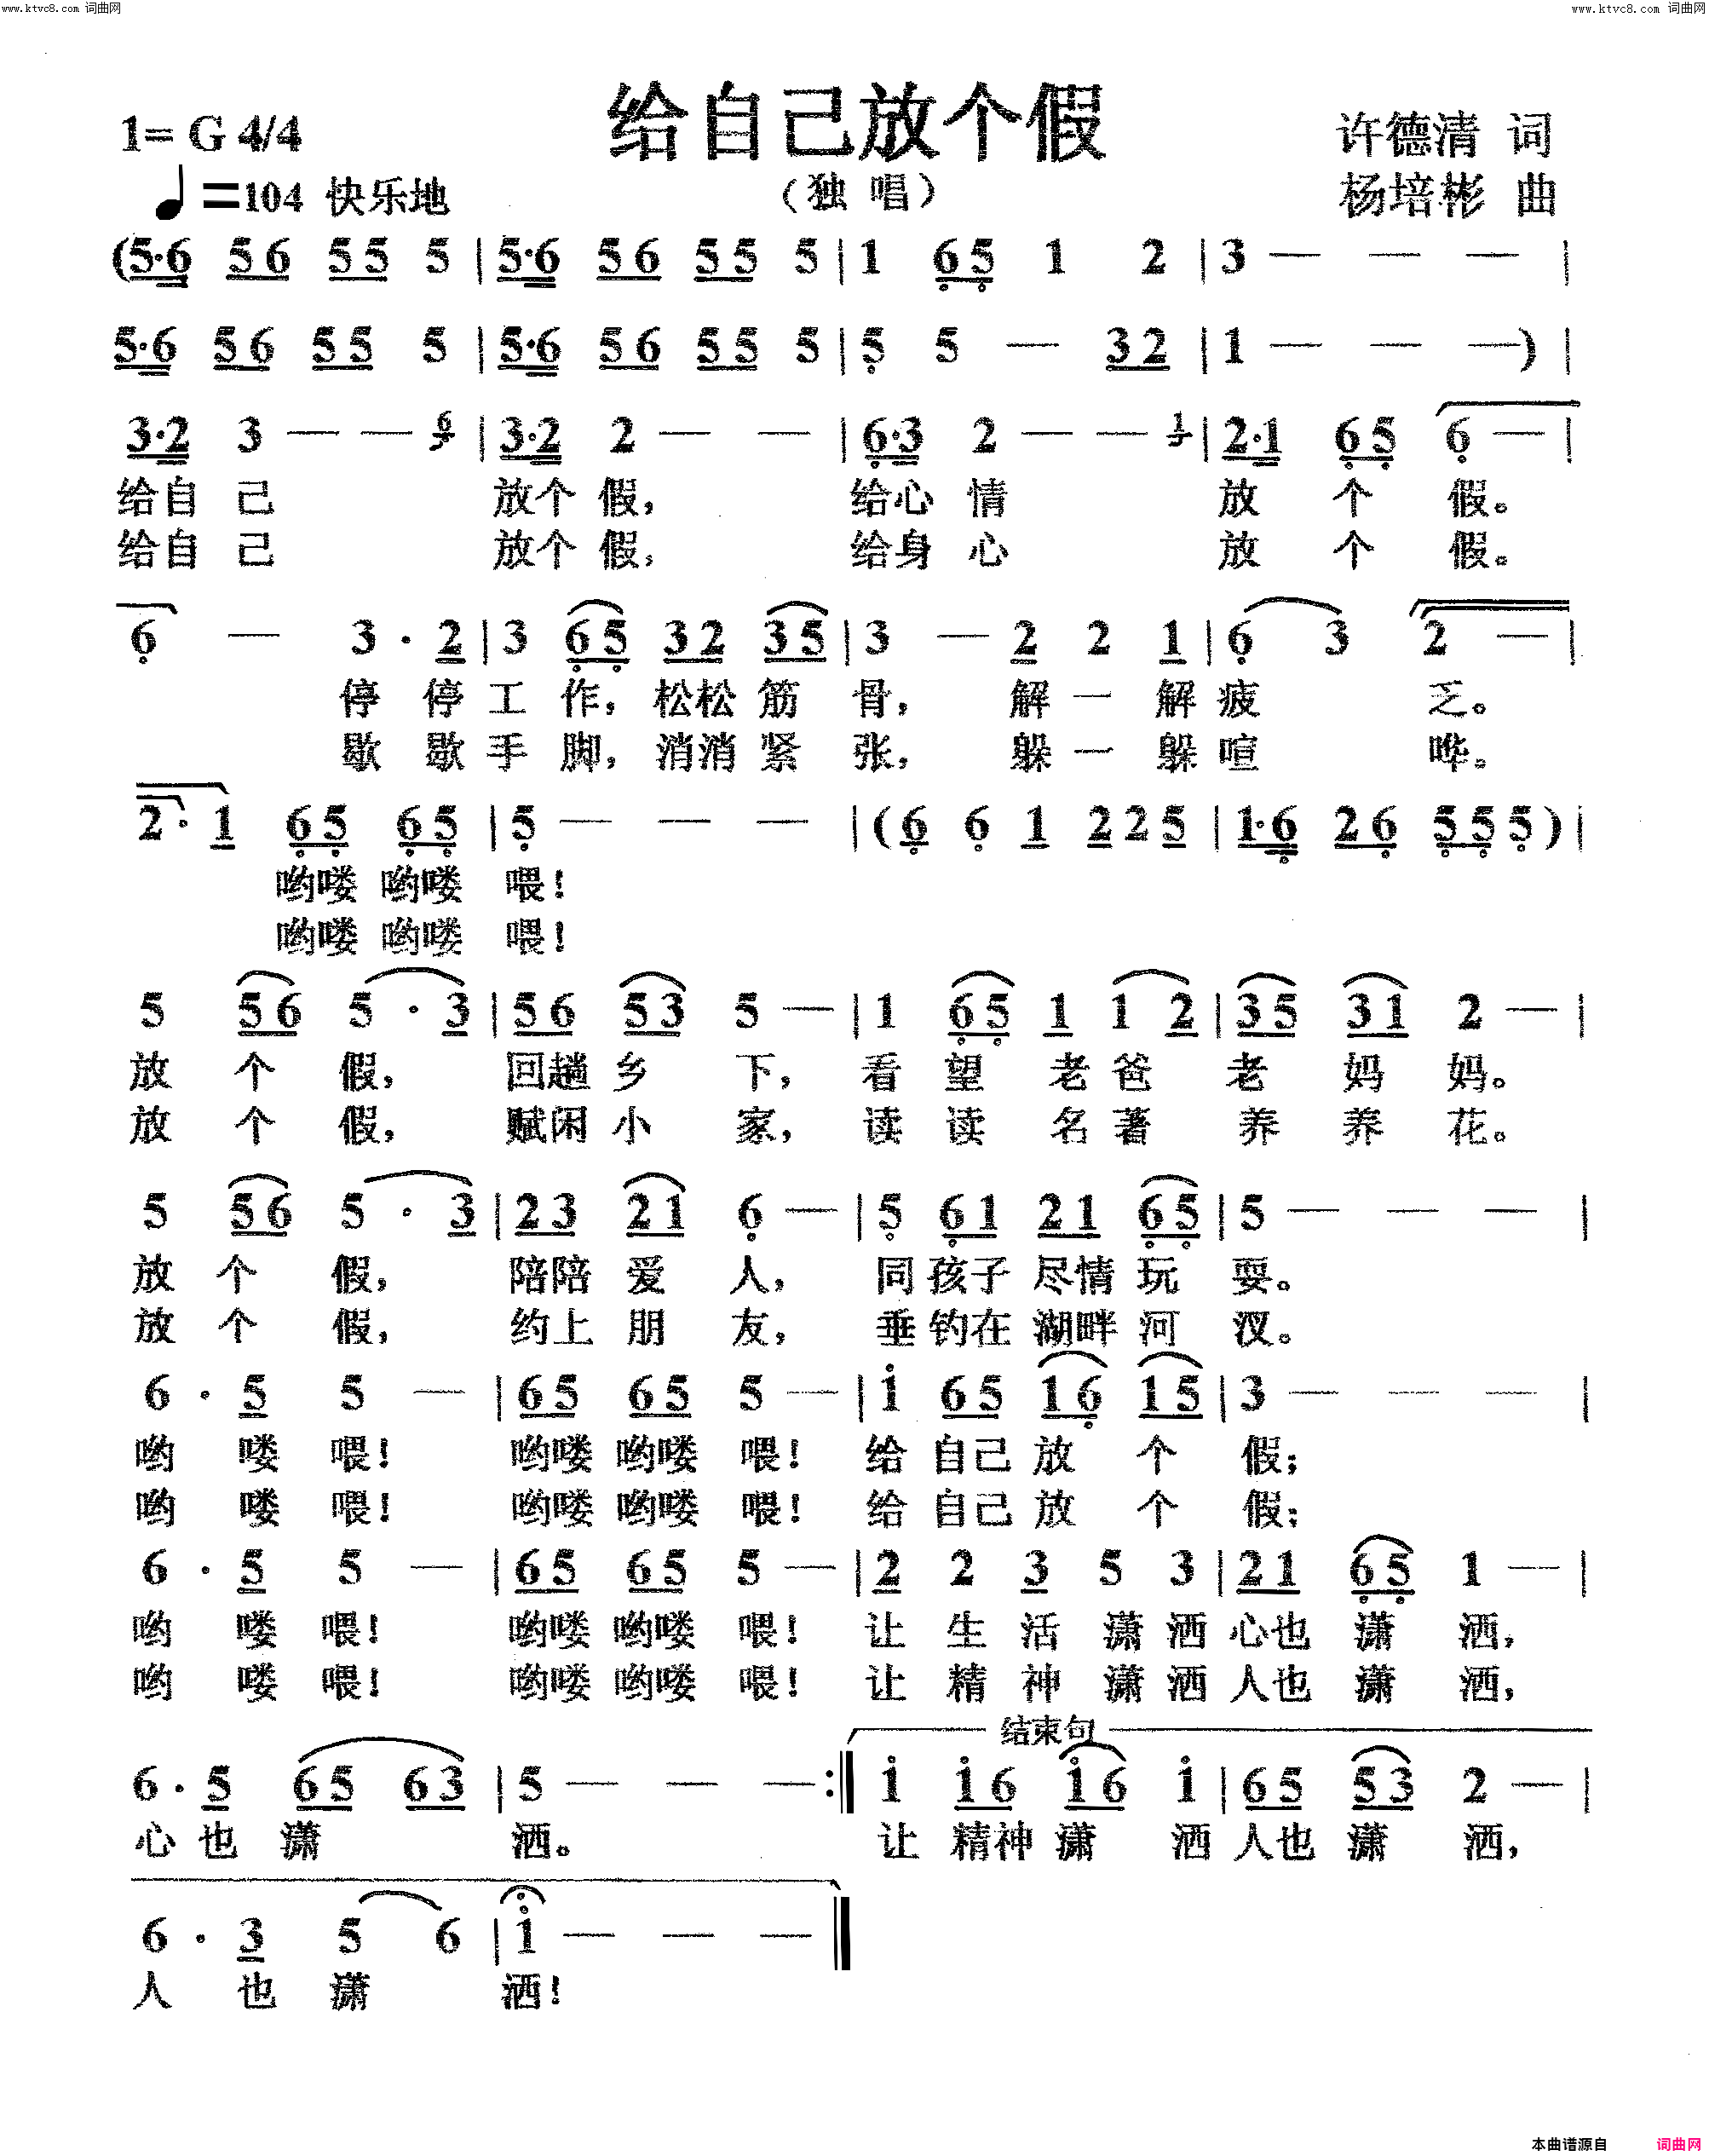 www.ktvc8.com 词曲网 www.ktvc8.com 词曲网
给自己放个假
1= G 4/4 许德清 词
♩=104 快乐地 (独 唱) 杨培彬 曲
(5·6 56 55 5 | 5·6 56 55 5 | 1 65 1 2 | 3 — — — |
5·6 56 55 5 | 5·6 56 55 5 | 5 5 — 32 | 1 — — —) |
3·2 3 — — 6 | 3·2 2 — — | 6·3 2 — — 1 | 2·1 65 6 — |
给自 己 放个 假, 给心 情 放 个 假。
给自 己 放个 假, 给身 心 放 个 假。
6 — 3 · 2 | 3 65 32 35 | 3 — 2 2 1 | 6 3 2 — |
停 停 工 作, 松松 筋 骨, 解 一 解 疲 乏。
歇 歇 手 脚, 消消 紧 张, 躲 一 躲 喧 哗。
2 · 1 65 65 | 5 — — — | (6 6 1 2 2 5 | 1·6 26 55 5) |
哟喽 哟喽 喂!
哟喽 哟喽 喂!
5 56 5 · 3 | 56 53 5 — | 1 65 1 1 2 | 35 31 2 — |
放 个 假, 回趟 乡 下, 看 望 老 爸 老 妈 妈。
放 个 假, 赋闲 小 家, 读 读 名 著 养 养 花。
5 56 5 · 3 | 23 21 6 — | 5 61 21 65 | 5 — — — |
放 个 假, 陪陪 爱 人, 同 孩子 尽情 玩 耍。
放 个 假, 约上 朋 友, 垂 钓在 湖畔 河 汊。
6 · 5 5 — | 65 65 5 — | 1 65 16 15 | 3 — — — |
哟 喽 喂! 哟喽 哟喽 喂! 给 自己 放 个 假;
哟 喽 喂! 哟喽 哟喽 喂! 给 自己 放 个 假;
6 · 5 5 — | 65 65 5 — | 2 2 3 5 3 | 21 65 1 — |
哟 喽 喂! 哟喽 哟喽 喂! 让 生 活 潇 洒 心也 潇 洒,
哟 喽 喂! 哟喽 哟喽 喂! 让 精 神 潇 洒 人也 潇 洒,
结束句
6 · 5 65 63 | 5 — — — :| 1 16 16 1 | 65 53 2 — |
心 也 潇 洒。 让 精神 潇 洒 人也 潇 洒,
6 · 3 5 6 | 1 — — — |
人 也 潇 洒!
本曲谱源自 词曲网